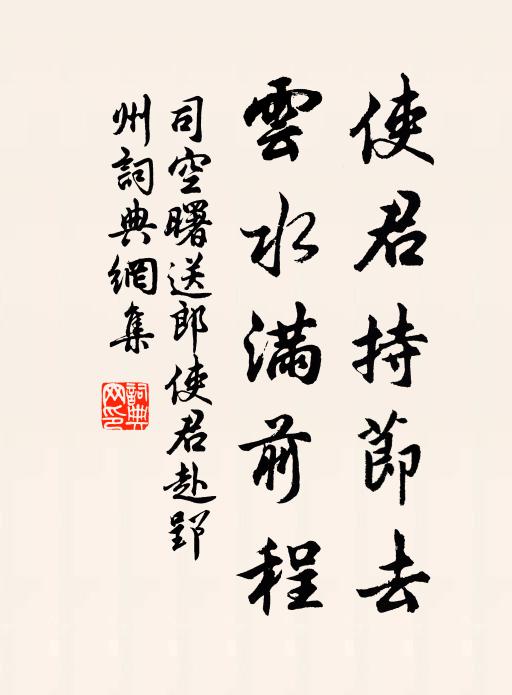 使君持節去
雲水滿前程
司空曙送郎使君赴郢
州詞典網集
詞典
网印